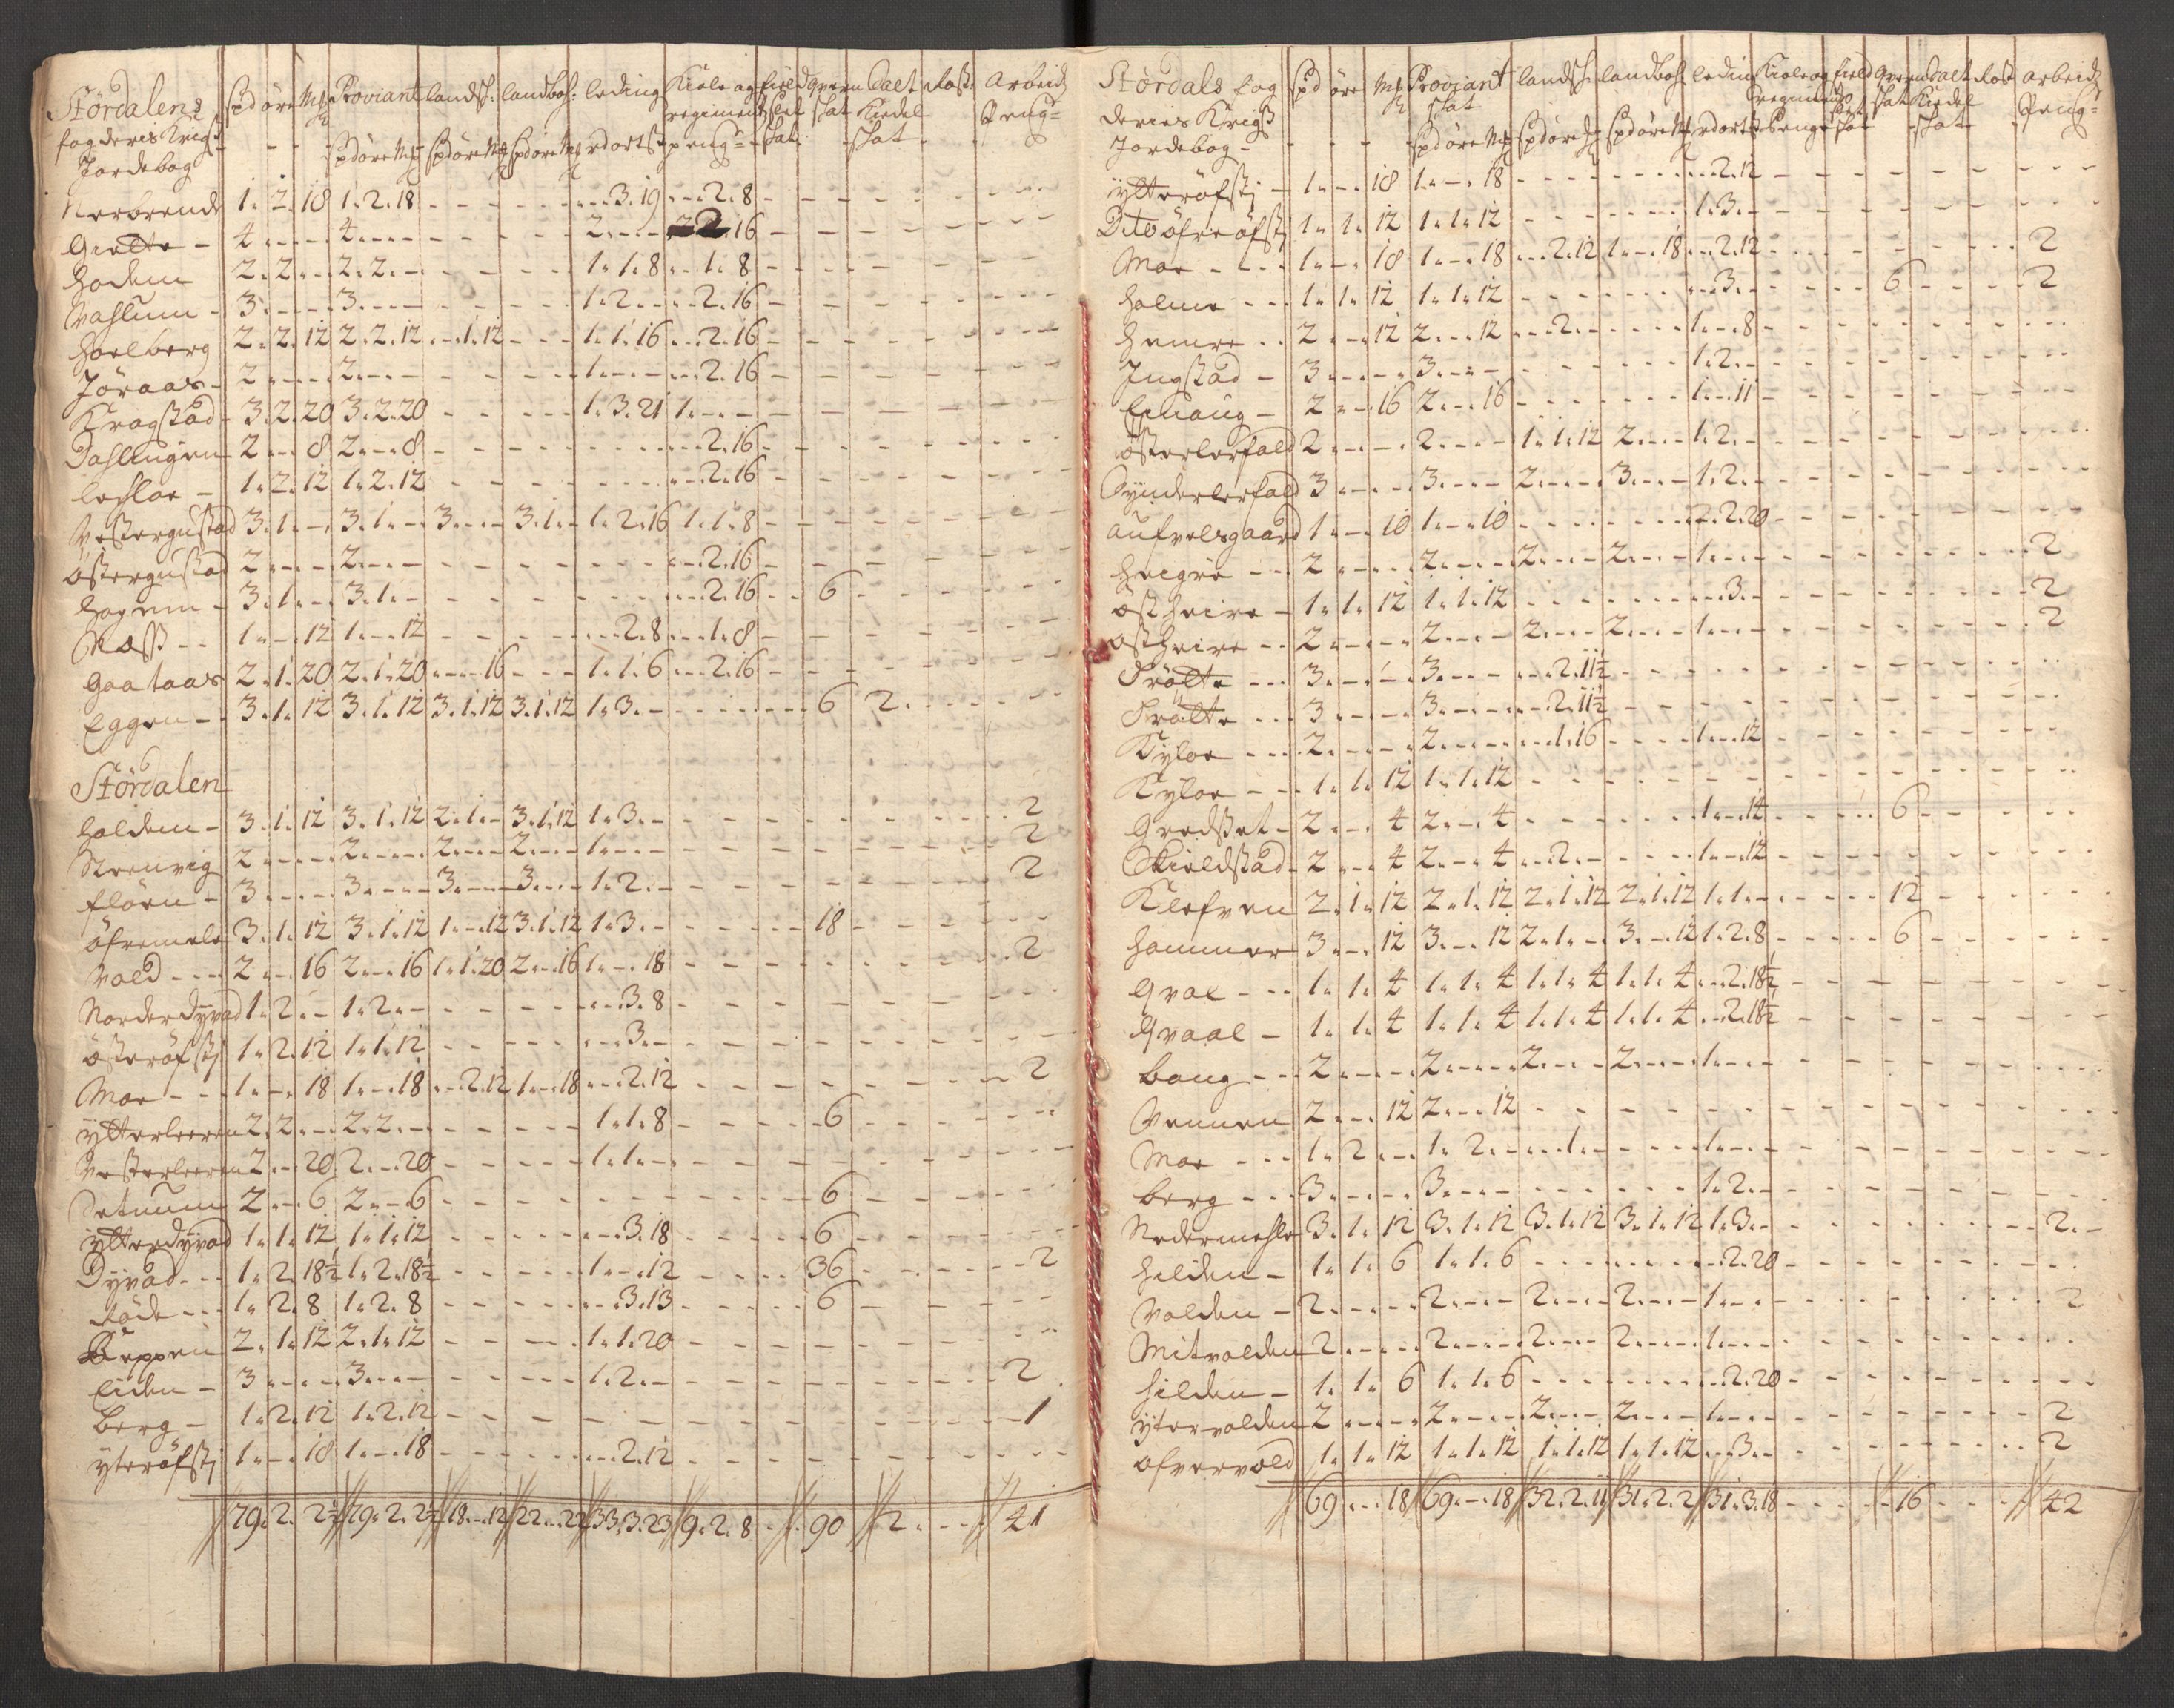 Stördalens
fogderis Krigs
Jordebog
spd öre Mk Proviant landsk: landboh: leding Kiole og field qvern Salt Rost: Arbeids
regiments skat skat Kiedel Peng=
spdöre Mk spdöre Mk spdöre Mk rdort ß peng= skat skat
1. 2. 18 1. 2. 18 - - - 3. 19 - 2. 8
Gielte - 4 - - 4 - - 2 - - 2. 16
Hodem 2. 2. - 2. 2. - 1. 1. 8 - 1. 8
Vaslum - 3 - - 3 - - 1. 2 - - 2. 16
Hoelberg 2. 2. 12 2. 2. 12 - 1. 12 - 1. 1. 16 - 2. 16
Jöraas - 2 - - 2 - - 1 - - - 2. 16
Kragstad - 3. 2. 20 3. 2. 20 - - 1. 3. 21 1 - -
Dahlingen 2 - 8 2 - 8 - - - 2. 16
Lehloe - 1. 2. 12 1. 2. 12 - - - 2. 16
Vestergustad 3. 1. - 3. 1. - 3 - - 3. 1. - 1. 2. 16 1. 1. 8
Östergustad 2 - - 2 - - - 2. 16
Hognem - 3. 1. - 3. 1. - - - 2. 16 - 6
Næss - - 1. - 12 1. - 12 - - 2. 8 - 1. 8
Gaataas 2. 1. 20 2. 1. 20 - - 16 - 1. 1. 6 - 2. 16
Eggen - - 3. 1. 12 3. 1. 12 3. 1. 12 3. 1. 12 1. 3. - - 6 2. -
Stördalen
Halden - 3. 1. 12 3. 1. 12 2. 1. - 3. 1. 12 1. 3. - - 2
Strenvig 2 - - 2 - - 2 - - 2 - - 1 - - - 2
Flören - 3 - - 3 - - 3 - - 3 - - 1. 2. - - 2
Öfremele 3. 1. 12 3. 1. 12 1. - 12 3. 1. 12 1. 3. - - 18
Vold - - 2 - 16 2. - 16 1. 1. 20 2. - 16 1. - 18 - 2
Norderdyvad 1. 2. - 1. 2. - - - 3. 8
Österöfstj 1. 2. 12 1. 1. 12 - - 3. -
Moe - - 1. - 18 1. - 18 - 2. 12 1. - 18 - 2. 12 - 2
Ytterleeren 2. 2. - 2. 2. - - 1. 1. 8 - 6
Vesterleeren 2. - 20 2. - 20 - 1. 1. -
2. - 6 2. - 6 - - 6
Ytterdyvad 1. 1. 12 1. 1. 12 - - 3. 18 - 6
Dyvad - - 1. 2. 18½ 1. 2. 18½ - 1. - 12 - 36 - 2
Röde - - 1. 2. 8 1. 2. 8 - - 3. 13 - 6
Reppen 2. 1. 12 2. 1. 12 - 1. 1. 20
Eiden - 3 - - 3 - - 1. 2. - - 2
Berg - 1. 2. 12 1. 2. 12 - - 1
Yteröfstj 1. - 18 1. - 18 - - 2. 12
79. 2. 2½ 79. 2. 2½ 18. - 12 22. - 22 33. 3. 23 9. 2. 8 - 90 2 - 21
Stördals fog
deries Krigs
Jordebog -
spd öre Mk Proviant landsk: landboh: leding Kiole og field qvern Salt Rost arbeids
skat regiments skat skat Kiedel Peng=
spdöre Mk spdöre Mk spdöre Mk rdort ß Penge skat skat
Ytteröfstj - 1. - 18 1. - 18 - - 2. 12
Dito Öfreöfstj 1. 1. 12 1. 1. 12 - 1. 3. -
Moe - - 1. - 18 1. - 18 - 2. 12 1. - 18 - 2. 12 - 2
Holme - - 1. 1. 12 1. 1. 12 - - 3. - - 6 - 2
Hemre - - 2. - 12 2. - 12 - 2. - - 1. - 8
Ingstad - 3 - - 3 - - 1. 2. -
2. - 16 2. - 16 - 1. - 11
Österlerfald 2 - - 2 - - 1. 1. 12 2 - - 1. 2. -
Synderlerfald 3 - - 3 - - 2 - - 3 - - 1. 2. -
Aufvelsgaard 1. - 10 1. - 10 - - 2. 20
Heigre - - 2 - - 2 - - 2 - - 2 - - 1 - - - 2
Östheire - 1. 1. 12 1. 1. 12 - - 3. - - 2
Östheire - - 2 - - 2 - - 2 - - 2 - - 1 - - - 2
Trölte - - 3 - - 3 - - - 2. 11½
Trölte - - 3 - - 3 - - - 2. 11½
Kyloe - - 2 - - 2 - - - 1. 16 - 1. - 12
Kyloe - - 1. 1. 12 1. 1. 12
Gredset - 2 - 4 2. - 4 - 1. - 14 - 6
Skieldstad - 2 - 4 2. - 4 - 2. - - 1. - 12
Klefven 2. 1. 12 2. 1. 12 2. 1. 12 2. 1. 12 1. 1. - - 12
Hammer 3. - 12 3. - 12 2. 1. - 3. - 12 1. 2. 8 - 6
Qval - - 1. 1. 4 1. 1. 4 1. 1. 4 1. 1. 4 - 2. 18½
Qvaal - 1. 1. 4 1. 1. 4 1. 1. 4 1. 1. 4 - 2. 18½
Boug - - 2 - - 2 - - 2 - - 2 - - 1 - -
Vennen 2. - 12 2. - 12
Moe - - 1. 2. - 1. 2. - - 1. - - 1 - -
Berg - - 3 - - 3 - - 1. 2. -
Nedermehle 3. 1. 12 3. 1. 12 3. 1. 12 3. 1. 12 1. 3. - - 2. -
Helden - 1. 1. 6 1. 1. 6 - - 2. 20
Valden - 2 - - 2 - - 2 - - 2 - - 1 - - - 2
Mitvalden 2 - - 2 - - 2 - - 2 - - 1 - -
Hilden - 1. 1. 6 1. 1. 6 - - 2. 20
Ytervalden 2 - - 2 - - 2 - - 2 - - 1 - - - 2
Ofvervold 1. 1. 12 1. 1. 12 1. 1. 12 1. 1. 12 - 3. - - 2
69. - 18 69. - 18 32. 2. 11 31. 2. 2 31. 3. 18 - 16 - 22